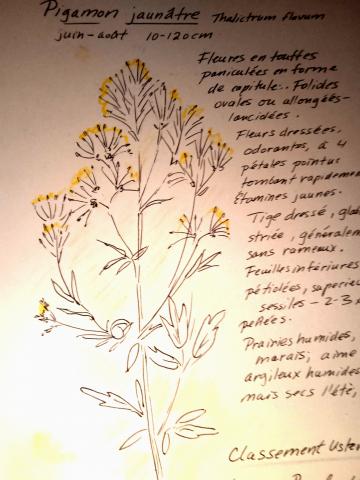 Pigamon jaunâtre Thalictrum flavum
juin-août 10-120cm
Fleures en touffes
paniculées en forme
de capitule. Folides
ovales ou allongées-
lancidées.
Fleurs dressées,
odorantes, à 4
pétales pointus
tombant rapidement
Étamines jaunes.
Tige dressé, gla
striée, généralem
sans rameux.
Feuilles infériures
pétiolées, saperieu
sessiles - 2-3 x
Prairies humides,
marais; aime
argileux humides
mais secs l'été,
Classement Uster